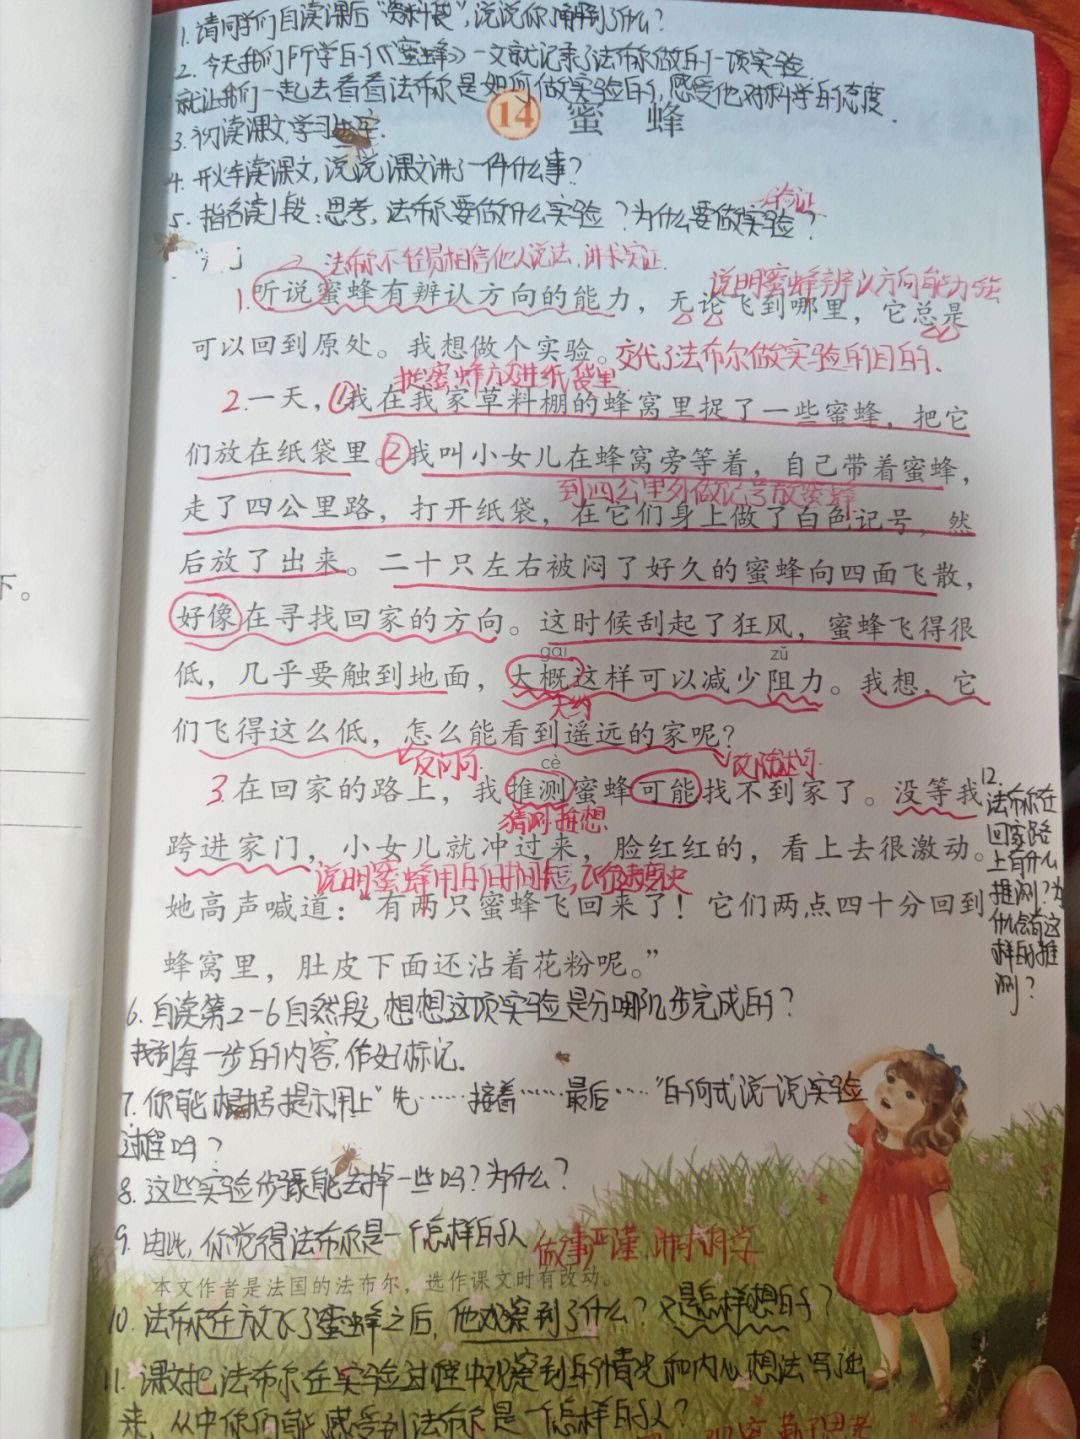 1. 请同学们自读课后“资料袋”,说说你了解到了什么?
2. 今天我们所学的《蜜蜂》一文就记录了法布尔做的一项实验.
就让我们一起去看看法布尔是如何做实验的,感受他对科学的态度.
14 蜜 蜂
3. 初读课文,学习生字.
4. 开火车读课文,说说课文讲了一件什么事?
验证
5. 指名读1段:思考,法布尔要做什么实验?为什么要做实验?
法布尔不轻易相信他人说法,讲求实证.
说明蜜蜂辨认方向能力强
1. 听说蜜蜂有辨认方向的能力,无论飞到哪里,它总是
可以回到原处。我想做个实验。
交代了法布尔做实验的目的.
捉蜜蜂放进纸袋里
2. 一天,①我在我家草料棚的蜂窝里捉了一些蜜蜂,把它
们放在纸袋里。②我叫小女儿在蜂窝旁等着,自己带着蜜蜂,
到四公里外做记号放蜜蜂
走了四公里路,打开纸袋,在它们身上做了白色记号,然
后放了出来。二十只左右被闷了好久的蜜蜂向四面飞散,
好像在寻找回家的方向。这时候刮起了狂风,蜜蜂飞得很
gài zǔ
低,几乎要触到地面,大概这样可以减少阻力。我想,它
大约
们飞得这么低,怎么能看到遥远的家呢?
反问句.
cè
3. 在回家的路上,我推测蜜蜂可能找不到家了。没等我
猜测 推想
跨进家门,小女儿就冲过来,脸红红的,看上去很激动。
她高声喊道:“有两只蜜蜂飞回来了!它们两点四十分回到
蜂窝里,肚皮下面还沾着花粉呢。”
12.
法布尔在
回家路
上有什么
推测?为
什么会有这
样的推
测?
6. 自读第2-6自然段,想想这项实验是分哪几步完成的?
找到每一步的内容,作好标记.
7. 你能根据提示用上“先……接着……最后……”的句式说一说实验
过程吗?
8. 这些实验步骤能去掉一些吗?为什么?
9. 由此,你觉得法布尔是一个怎样的人
做事严谨、讲求科学
本文作者是法国的法布尔,选作课文时有改动。
10. 法布尔在放飞了蜜蜂之后,他观察到了什么?又是怎样想的?
11. 课文把法布尔在实验过程中观察到的情况和内心想法写出
来,从中你们能感受到法布尔是一个怎样的人?